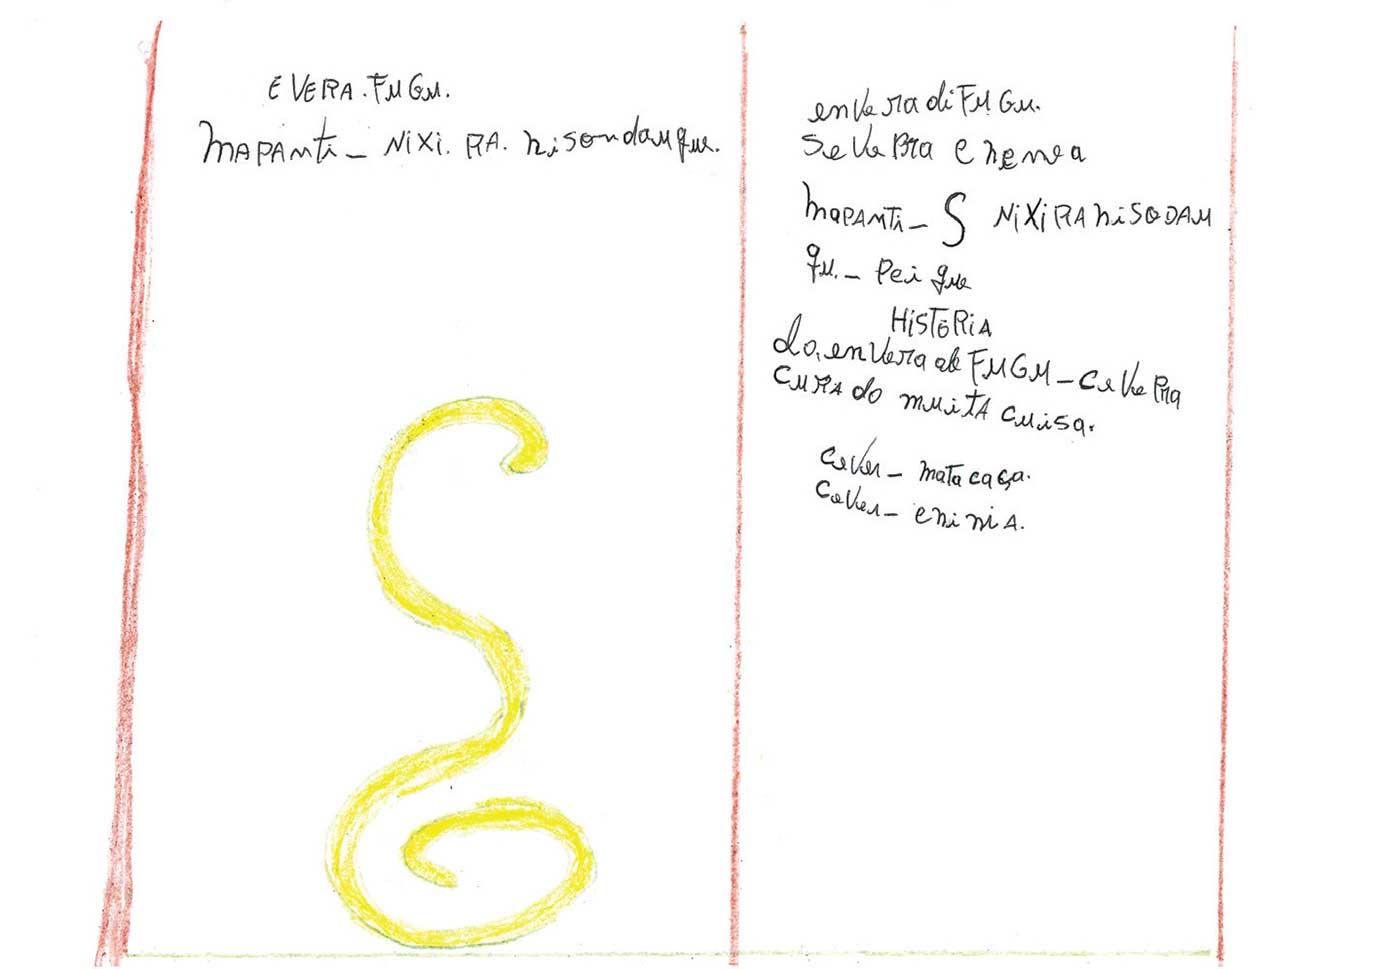 E VERA. FUGU.
MAPANTI_ NiXi. RA. hisondauque.
envera di FUGU.
SeVePra e henea
MAPANTI_ S NiXiRAhiSODAU
qu._ Pei que
HiSTĒRiA
do, envera de FUGU_ CeVePra
CURADO muiTA cuisa.
CeVer_ matacaça.
CeVer_ eniniA.